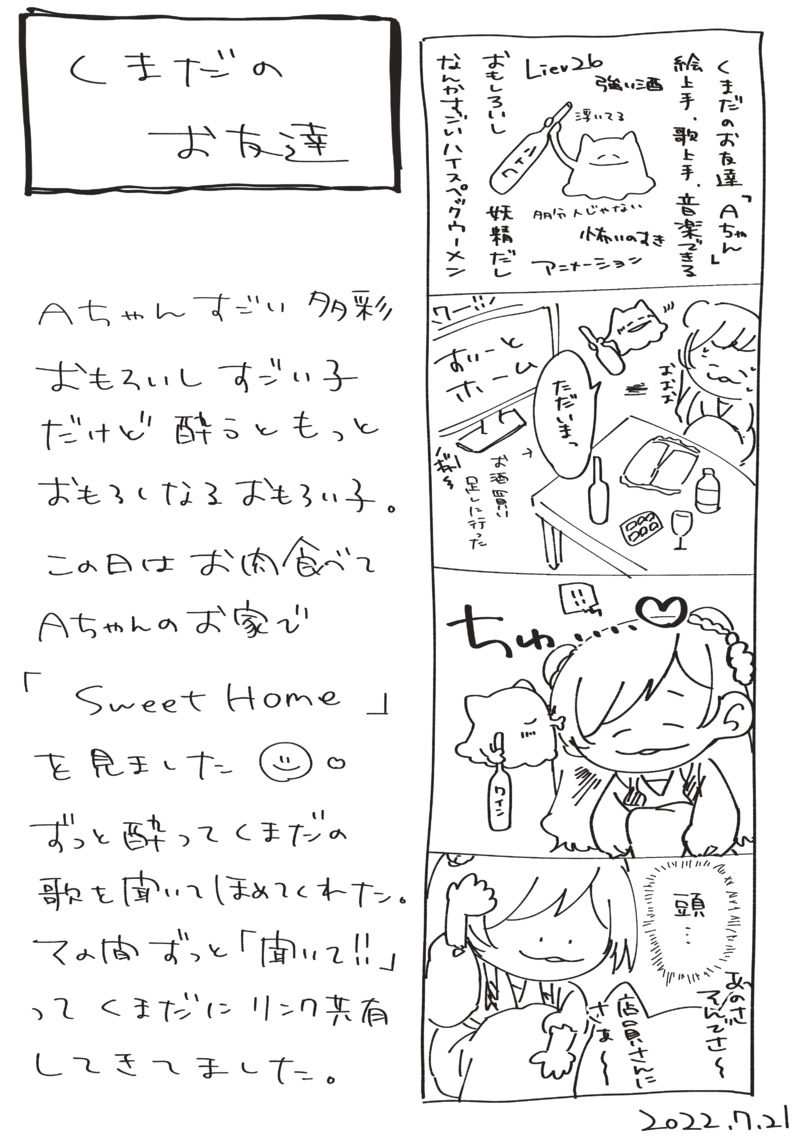 くまだの
お友達
Aちゃんすごい多彩
おもろいしすごい子
だけど酔うともっと
おもろくなるおもろい子。
この日はお肉食べて
Aちゃんのお家で
「Sweet Home」
を見ました
ずっと酔ってくまだの
歌を聞いてほめてくれた。
その間ずっと「聞いて!!」
ってくまだにリンク共有
してきてました。
くまだのお友達「Aちゃん」
絵上手、歌上手、音楽できる
強い酒
Liev26
浮いてる
ワイン
多分人じゃない
怖いのすき
アニメーション
おもしろいし
妖精だし
なんかすごいハイスペックウーメン
ワー!!
すいーと
ホーム
おおお
ただいまっ
お酒買い
足しに行った
ギャー
ちゅ....
!!
ワイン
頭…
あのさ
そんでさ〜
店員さんに
さぁ〜
2022.7.21